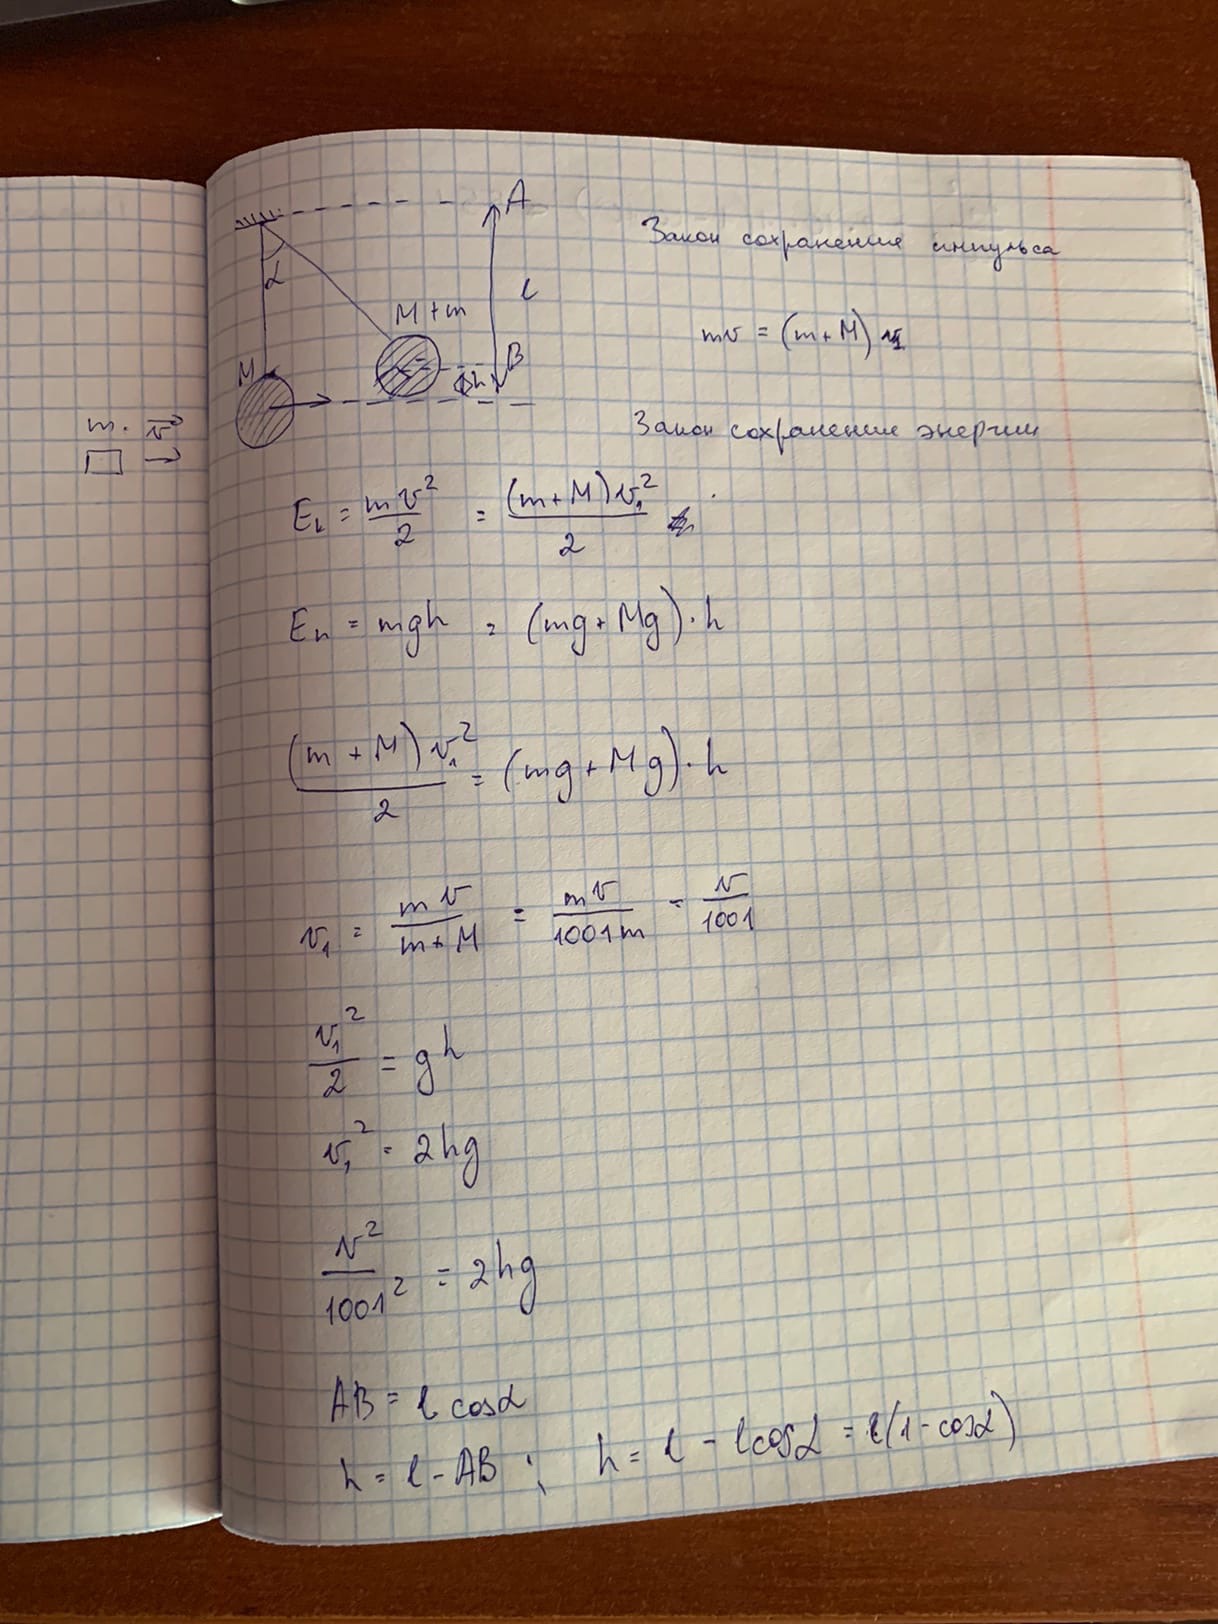 A
Закон сохранение импульса
α
l
M+m
mv = (m+M) v₁
M
B
h
m. v⃗
Закон сохранение энергии
Eₖ = mv²/2 = (m+M)v₁²/2
Eп = mgh = (mg+Mg)·h
(m+M)v₁²/2 = (mg+Mg)·h
v₁ = mv/(m+M) = mv/1001m = v/1001
v₁²/2 = gh
v₁² = 2hg
v²/1001² = 2hg
AB = l cosα
h = l - AB ; h = l - lcosα = l(1-cosα)